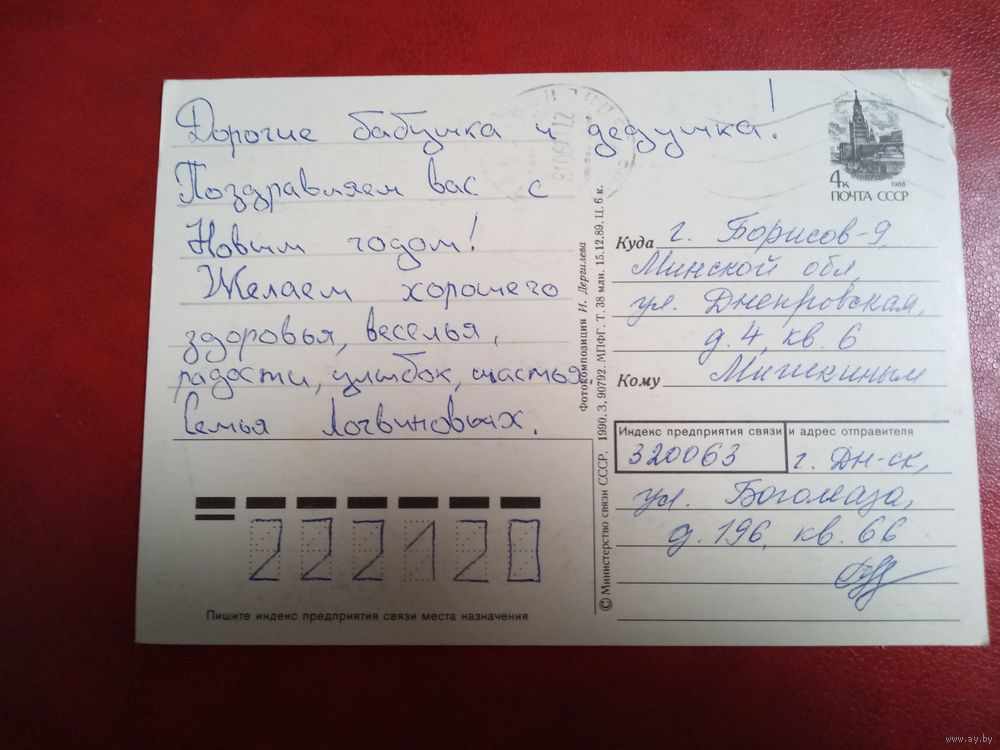 Дорогие бабушка и дедушка!
Поздравляем вас с
Новым годом!
Желаем хорошего
здоровья, веселья,
радости, улыбок, счастья.
Семья Логвиновых.
222120
Пишите индекс предприятия связи места назначения
© Министерство связи СССР, 1990. З. 90792. МПФГ. Т. 38 млн. 15.12.89. Ц. 6 к.
Фотокомпозиция И. Дергилева
4к 1988
ПОЧТА СССР
Куда г. Борисов-9,
Минской обл,
ул. Днепровская,
д. 4, кв. 6
Кому Мишкиным
Индекс предприятия связи и адрес отправителя
320063 г. Дн-ск,
ул. Богомаза,
д. 196, кв. 66
www.ay.by